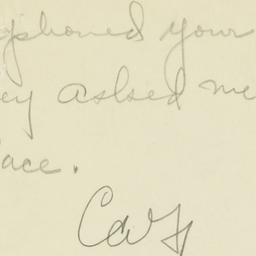 yphoned your
ey asked me
ace.